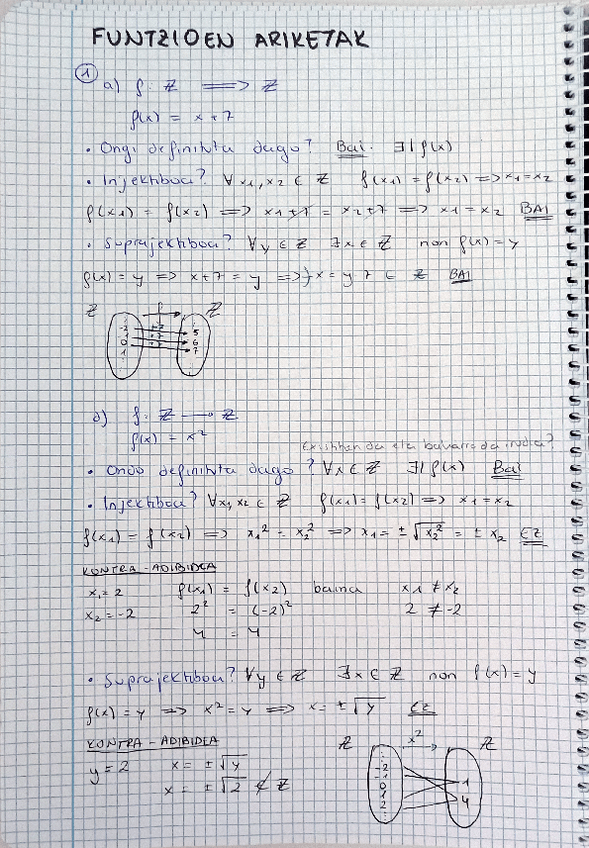 FUNTZIOEN ARIKETAK
1 a) f: ℤ ⟹ ℤ
f(x) = x+7
• Ongi definituta dago? Bai. ∃! f(x)
• Injektiboa? ∀ x1, x2 ∈ ℤ f(x1) = f(x2) => x1 = x2
f(x1) = f(x2) => x1+7 = x2+7 => x1 = x2 BAI
• Suprajektiboa? ∀y ∈ ℤ ∃x ∈ ℤ non f(x) = y
f(x) = y => x+7 = y => x = y-7 ∈ ℤ BAI
ℤ f ℤ
-2 +7 5
-1 +7 6
0 +7 7
1
b) f: ℤ → ℤ
f(x) = x²
existitzen da eta bakarra da irudia?
• Ondo definituta dago? ∀x ∈ ℤ ∃! f(x) Bai
• Injektiboa? ∀x1, x2 ∈ ℤ f(x1) = f(x2) => x1 = x2
f(x1) = f(x2) => x1² = x2² => x1 = ±√x2² = ± x2 EZ
KONTRA-ADIBIDEA
x1 = 2 f(x1) = f(x2) baina x1 ≠ x2
x2 = -2 2² = (-2)² 2 ≠ -2
4 = 4
• Suprajektiboa? ∀y ∈ ℤ ∃x ∈ ℤ non f(x) = y
f(x) = y => x² = y => x = ±√y EZ
KONTRA-ADIBIDEA
y = 2 x = ±√y
x = ±√2 ∉ ℤ
ℤ x² ℤ
-2
-1 1
0
1 4
2